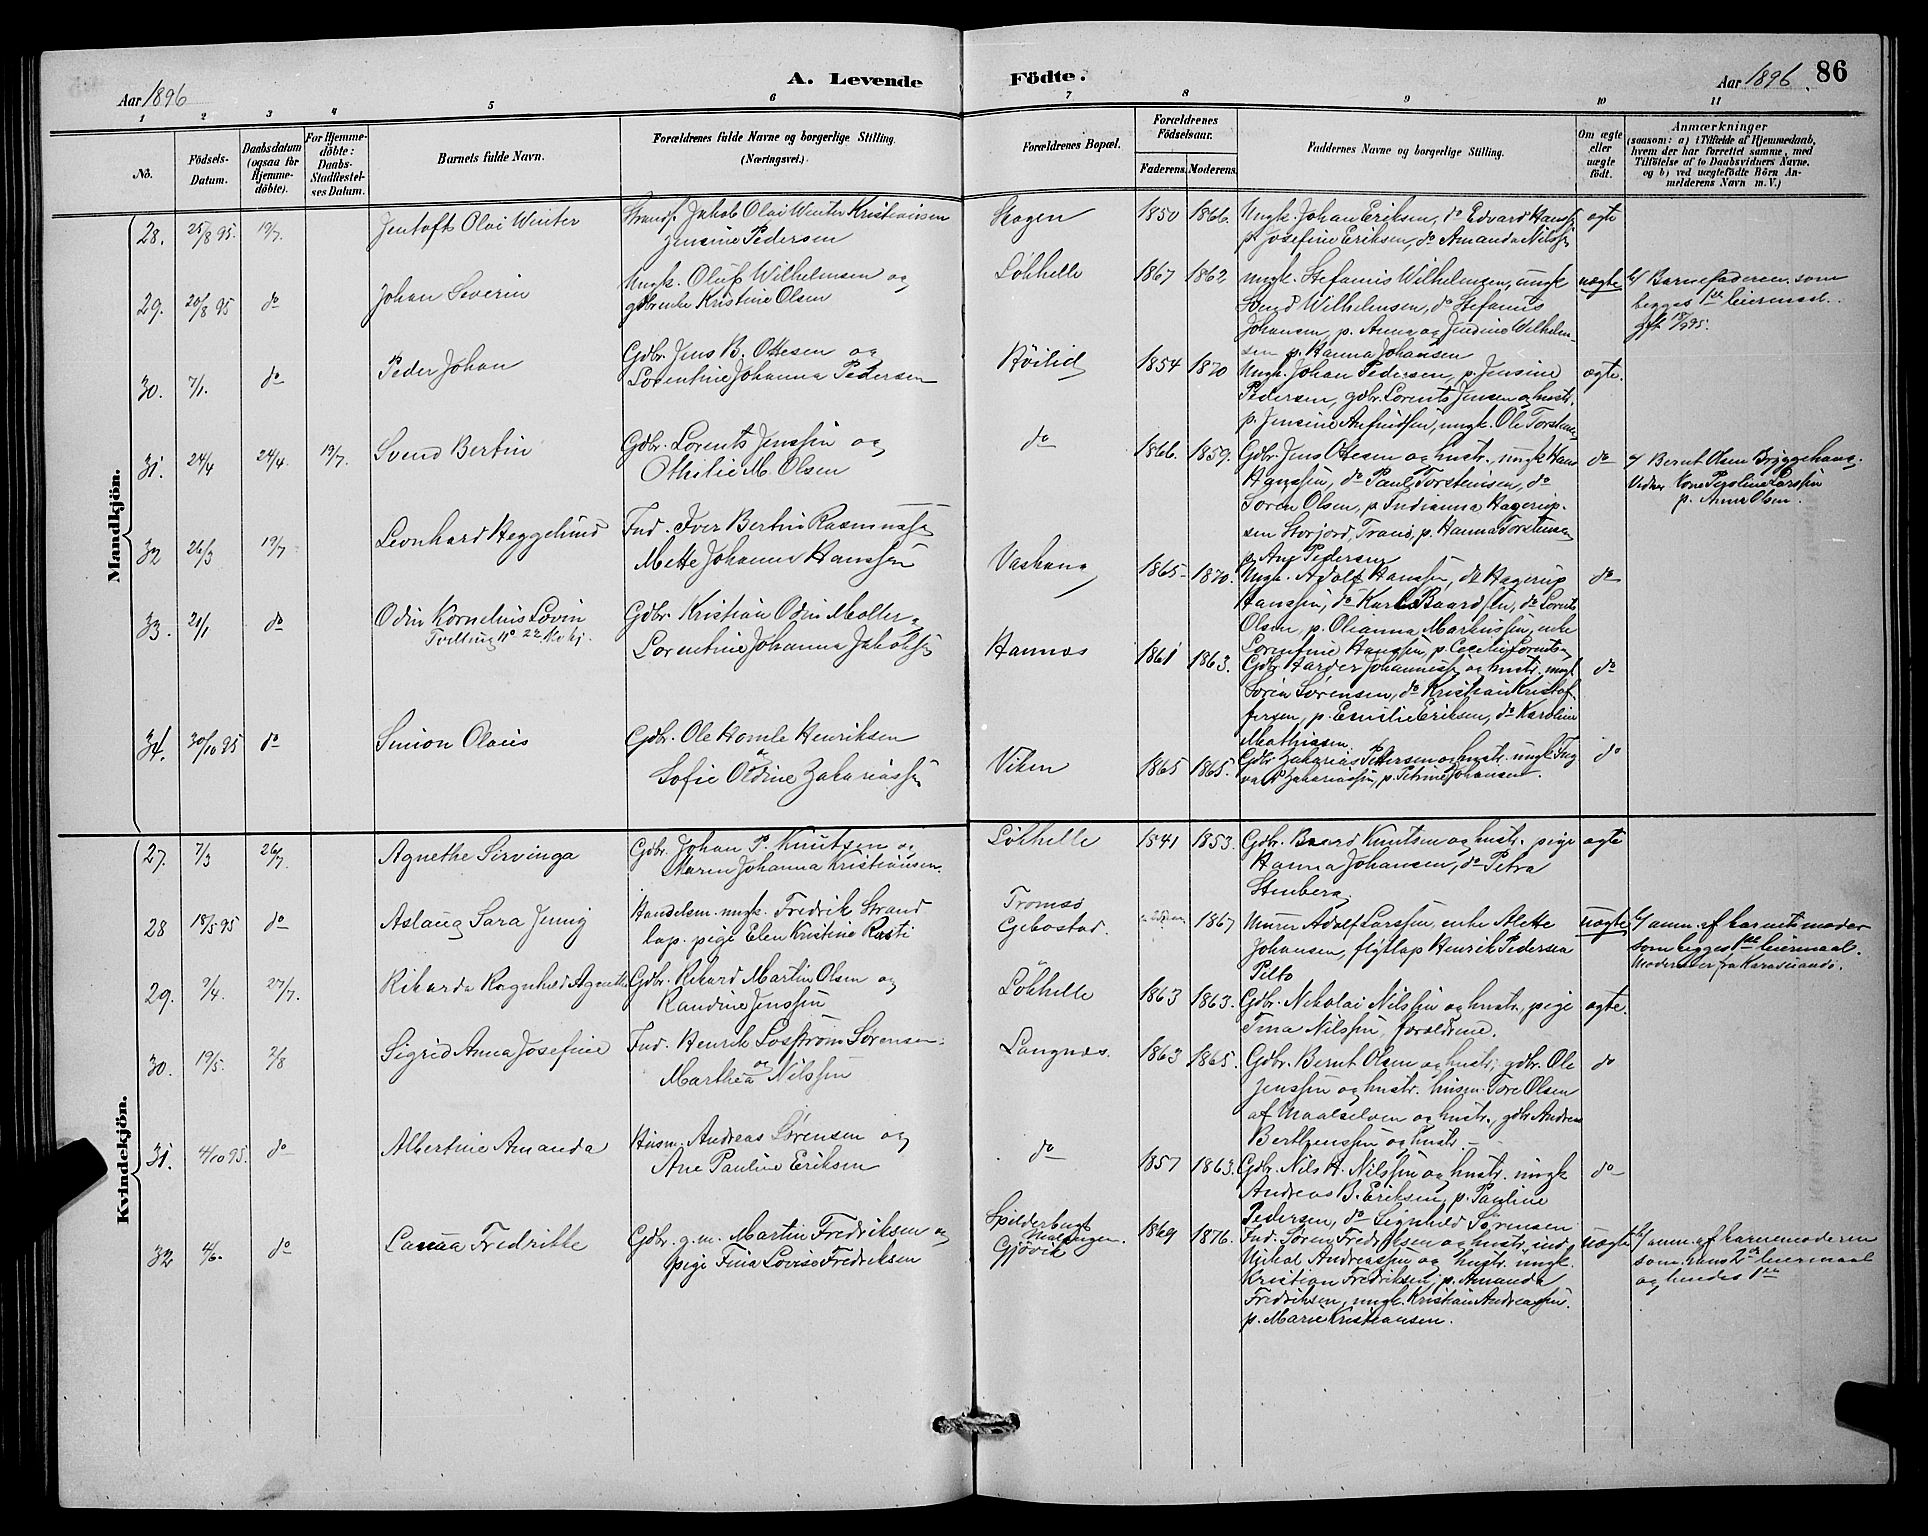 Aar 1896
A. Levende Födte.
Aar 1896. 86
1 2 3 4 5 6 7 8 9 10 11
No.
Födsels-Datum.
Daabsdatum (ogsaa for Hjemme-döbte).
For Hjemme-döbte: Daabs-Stadfæstelses Datum.
Barnets fulde Navn.
Forældrenes fulde Navne og borgerlige Stilling. (Næringsvei.)
Forældrenes Bopæl.
Forældrenes Födselsaar.
Faderens. Moderens.
Faddernes Navne og borgerlige Stilling.
Om ægte eller uægte födt.
Anmærkninger
(saasom: a) i Tilfælde af Hjemmedaab,
hvem der har forrettet samme, med
Tilföielse af to Daabsvidners Navne.
og b) ved uægtefödte Börn An-
melderens Navn m. V.)
Mandkjön.
28. 25/8 95. 19/7. Jentoft Olai Winter
Strands. Jakob Olai Winter Kristiansen
Jensine Pedersen
1850 1866.
Ungk. Johan Eriksen, do Edvard Hanss.
p. Josefine Eriksen, do Amanda Nilssen
ægte
29. 20/8 95 do Johan Severin
Ungk. Oluf Wilhelmsen og
gdbrenke Kristine Olsen
Løkhelle 1867 1862
ungk. Stefanis Wilhelmsen, ungk
Svend Wilhelmsen, do Stefanus
Johansen, p. Anna og Jendine Wilhelm-
sen p. Hanna Johansen
uægte
b/ Barnefaderen som
begges 1ste leiermaal.
gift 18/9 95.
30. 7/1. do Peder Johan
Gdbr. Jens B. Ottesen og
Lorentine Johanna Pedersen
Røilid 1854 1870
Ungk. Johan Pedersen, p. Jensine
Pedersen, gdbr. Lorents Jensen og hustr.
p. Jensine Arfindsen, ungk. Ole Torstens.
ægte.
31. 24/4 24/4. 19/7. Svend Bertin
Gdbr. Lorents Jenssen og
Othilie M. Olsen
do 1866. 1859.
Gdbr. Jens Ottesen og hustr., ungk Hans
Hanssen, do Paul Torstensen, do
Søren Olsen, p. Indianna Hagerup-
sen Storjord, Tranø, p. Hanna Torstensen
p. Ane Pedersen
do
a/ Bernt Olsen Bryggehaug.
Vidner Kone Pegoline Larssen
p. Anna Olsen.
32 26/3 19/7 Leonhard Heggelund
Ind. Iver Bertin Rasmuss.
Mette Johanna Hanssen
Vashaug 1865 1870.
Ungk. Adolf Hanssen, do Hagerup
Hanssen, do Karl Baardsen, do Lorents
Olsen, p. Olianna Markussen, enke
Lorentine Hanssen, p. Cecilie Lorents.
do
33. 21/1 do Odin Kornelius Lovin
Tvilling No 22 Kv.kj.
Gdbr. Kristian Odin Moller
Lorentine Johanna Jakobsen
Hamnæs 1861 1863.
Gdbr. Harder Johanness. og hustr. ungk
Søren Sørensen, do Kristian Kristof-
fersen, p. Emilie Eriksen, do Karoline
Mathiasen.
do
34. 30/10 95 do Simon Olaus
Gdbr. Ole Homle Henriksen
Sofie Oldine Zakariassen
Viken 1865 1865.
Gdbr. Zakarias Pettersen og hustr. ungk Ing
vald Zakariassen, p. Petrine Johansen.
do
Kvindekjön.
27. 7/3 26/7 Agnethe Servinga
Gdbr. Johan P. Knutsen og
Maren Johanna Kristiansen.
Løkhelle 1841 1853.
Gdbr. Baard Knutsen og hustr. pige
Hanna Johansen, do Petra
Stenberg.
ægte
28 18/5 95 do Aslaug Sara Jenny
Handelsm. ungk. Fredrik Strand
lap. pige Elen Kristine Rasti
Tromsø
Gibostad. 1867
Murer Adolf Larssen, enke Alette
Johansen, flytlap Henrik Pedersen
Pilto
uægte
b/ anm. af barnets moder
som begges 1ste leiermaal.
Moderen er fra Karasuando.
29. 9/4. 27/7. Rikarda Ragnhild Agnethe
Gdbr. Rikard Martin Olsen og
Randine Jenssen
Løkhelle 1863 1863.
Gdbr. Nikolai Nilssen og hustr., pige
Tina Nilssen, forældrene.
ægte.
30. 19/5. 2/8 Sigrid Anna Josefine
Ind. Henrik Losstrøm Sørensen
og
Marthea Nilssen
Langnæs. 1863 1865.
Gdbr. Bernt Olsen og hustr., gdbr. Ole
Jenssen og hustr. husm. Tore Olsen
af Maalselven og hustr., gdbr Andreas
Berthenssen og hustr.
do
31. 4/10 95. do Albertine Amanda
Husm. Andreas Sørensen og
Ane Pauline Eriksen
do 1857 1863.
Gdbr. Nils A. Nilssen og hustr. ungk
Andreas B. Eriksen, p. Pauline
Pedersen, do Signhild Sørensen
do
32 4/6. do Laura Fredrikke
Gdbr. g.m. Martin Fredriksen og
pige Tina Lovise Fredriksen
Spilderbugt
Malangen.
Gjøvik 1869 1876.
Ind. Søren Fredriksen og hustr., ind.
Mikal Andreassen og hustr. ungk.
Kristian Fredriksen, p. Amanda
Fredriksen, ungk. Kristian Andreassen.
p. Marie Kristiansen.
uægte
b/ anm. af barnemoderen
som hans 2det leiermaal
og hendes 1ste